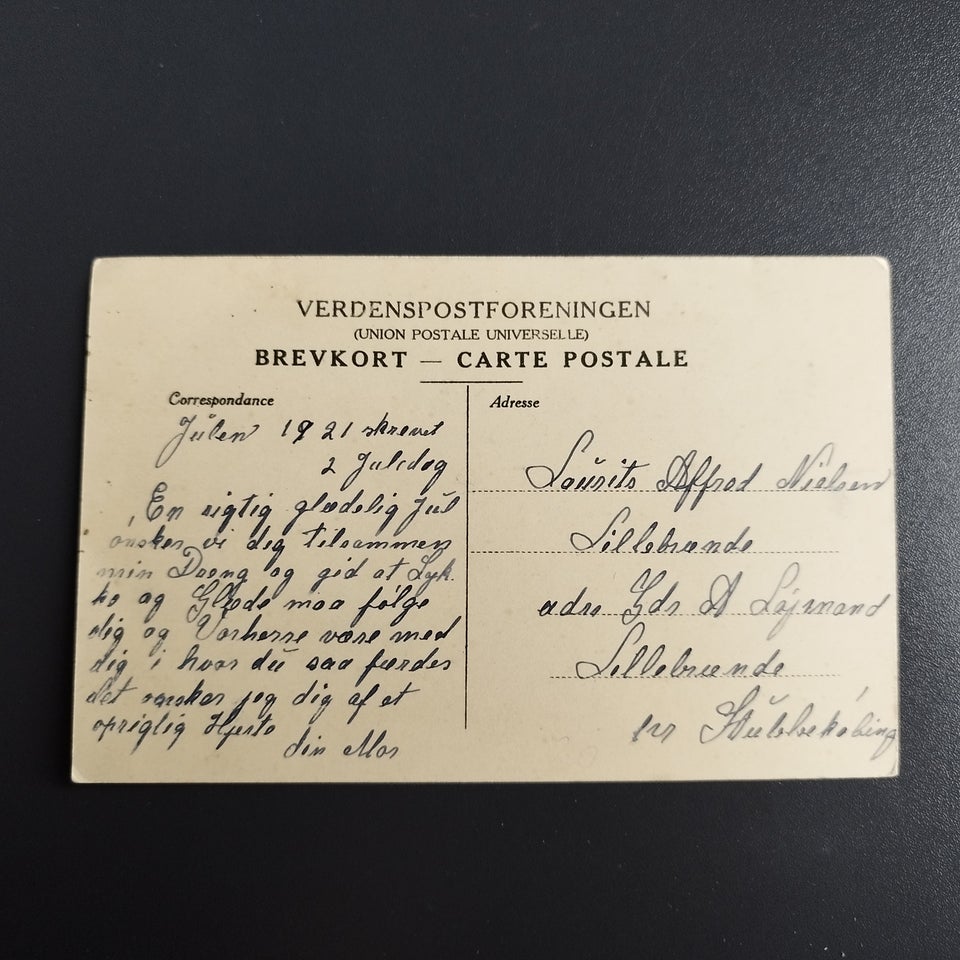 VERDENSPOSTFORENINGEN
(UNION POSTALE UNIVERSELLE)
BREVKORT — CARTE POSTALE
Correspondance
Julen 1921 skrevet
2 Juledag
En rigtig glædelig Jul
ønsker vi dig tilsammen
min Dreng og gid at Lyk
ke og Glæde maa følge
dig og Vorherre være med
dig i hvor du saa færdes
det ønsker jeg dig af et
oprigtig Hjerte
din Mor
Adresse
Laurits Alfred Nielsen
Lillebrænde
adrs Gdr A Lojmand
Lillebrænde
pr Stubbekøbing